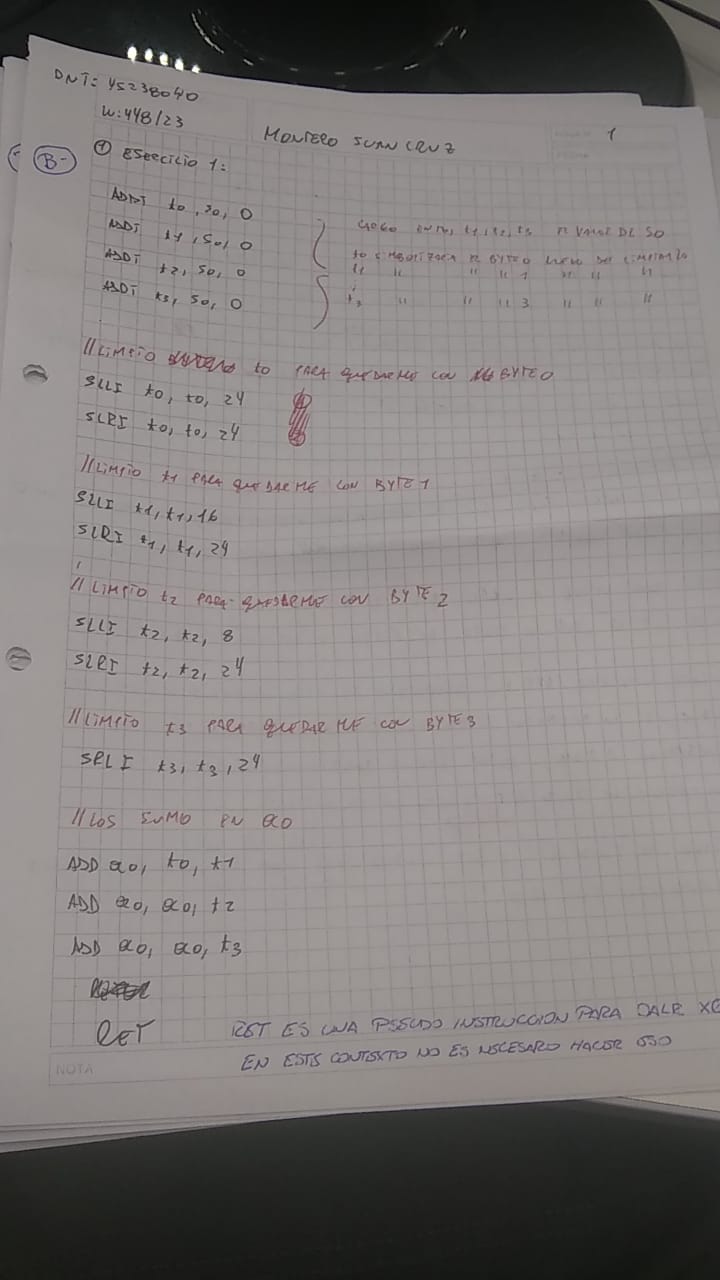 DNI: 45238040
LU: 448/23
MONTERO JUAN CRUZ
1
B-
① EJERCICIO 1:
ADDI t0, s0, 0
ADDI t1, s0, 0
ADDI t2, s0, 0
ADDI t3, s0, 0
CARGO EN t0, t1, t2, t3 EL VALOR DE S0
t0 SIMBOLIZARA EL BYTE 0 LUEGO DEL LIMPIADO
" " " " 1 " " "
t3 " " " 3 " " "
// LIMPIO t0 PARA QUEDARME CON BYTE 0
SLLI t0, t0, 24
SLRI t0, t0, 24
// LIMPIO t1 PARA QUEDARME CON BYTE 1
SLLI t1, t1, 16
SLRI t1, t1, 24
// LIMPIO t2 PARA QUEDARME CON BYTE 2
SLLI t2, t2, 8
SLRI t2, t2, 24
// LIMPIO t3 PARA QUEDARME CON BYTE 3
SRLI t3, t3, 24
// LOS SUMO EN a0
ADD a0, t0, t1
ADD a0, a0, t2
ADD a0, a0, t3
RET
RET ES UNA PSEUDO INSTRUCCION PARA JALR
EN ESTE CONTEXTO NO ES NECESARIO HACER ESO
NOTA